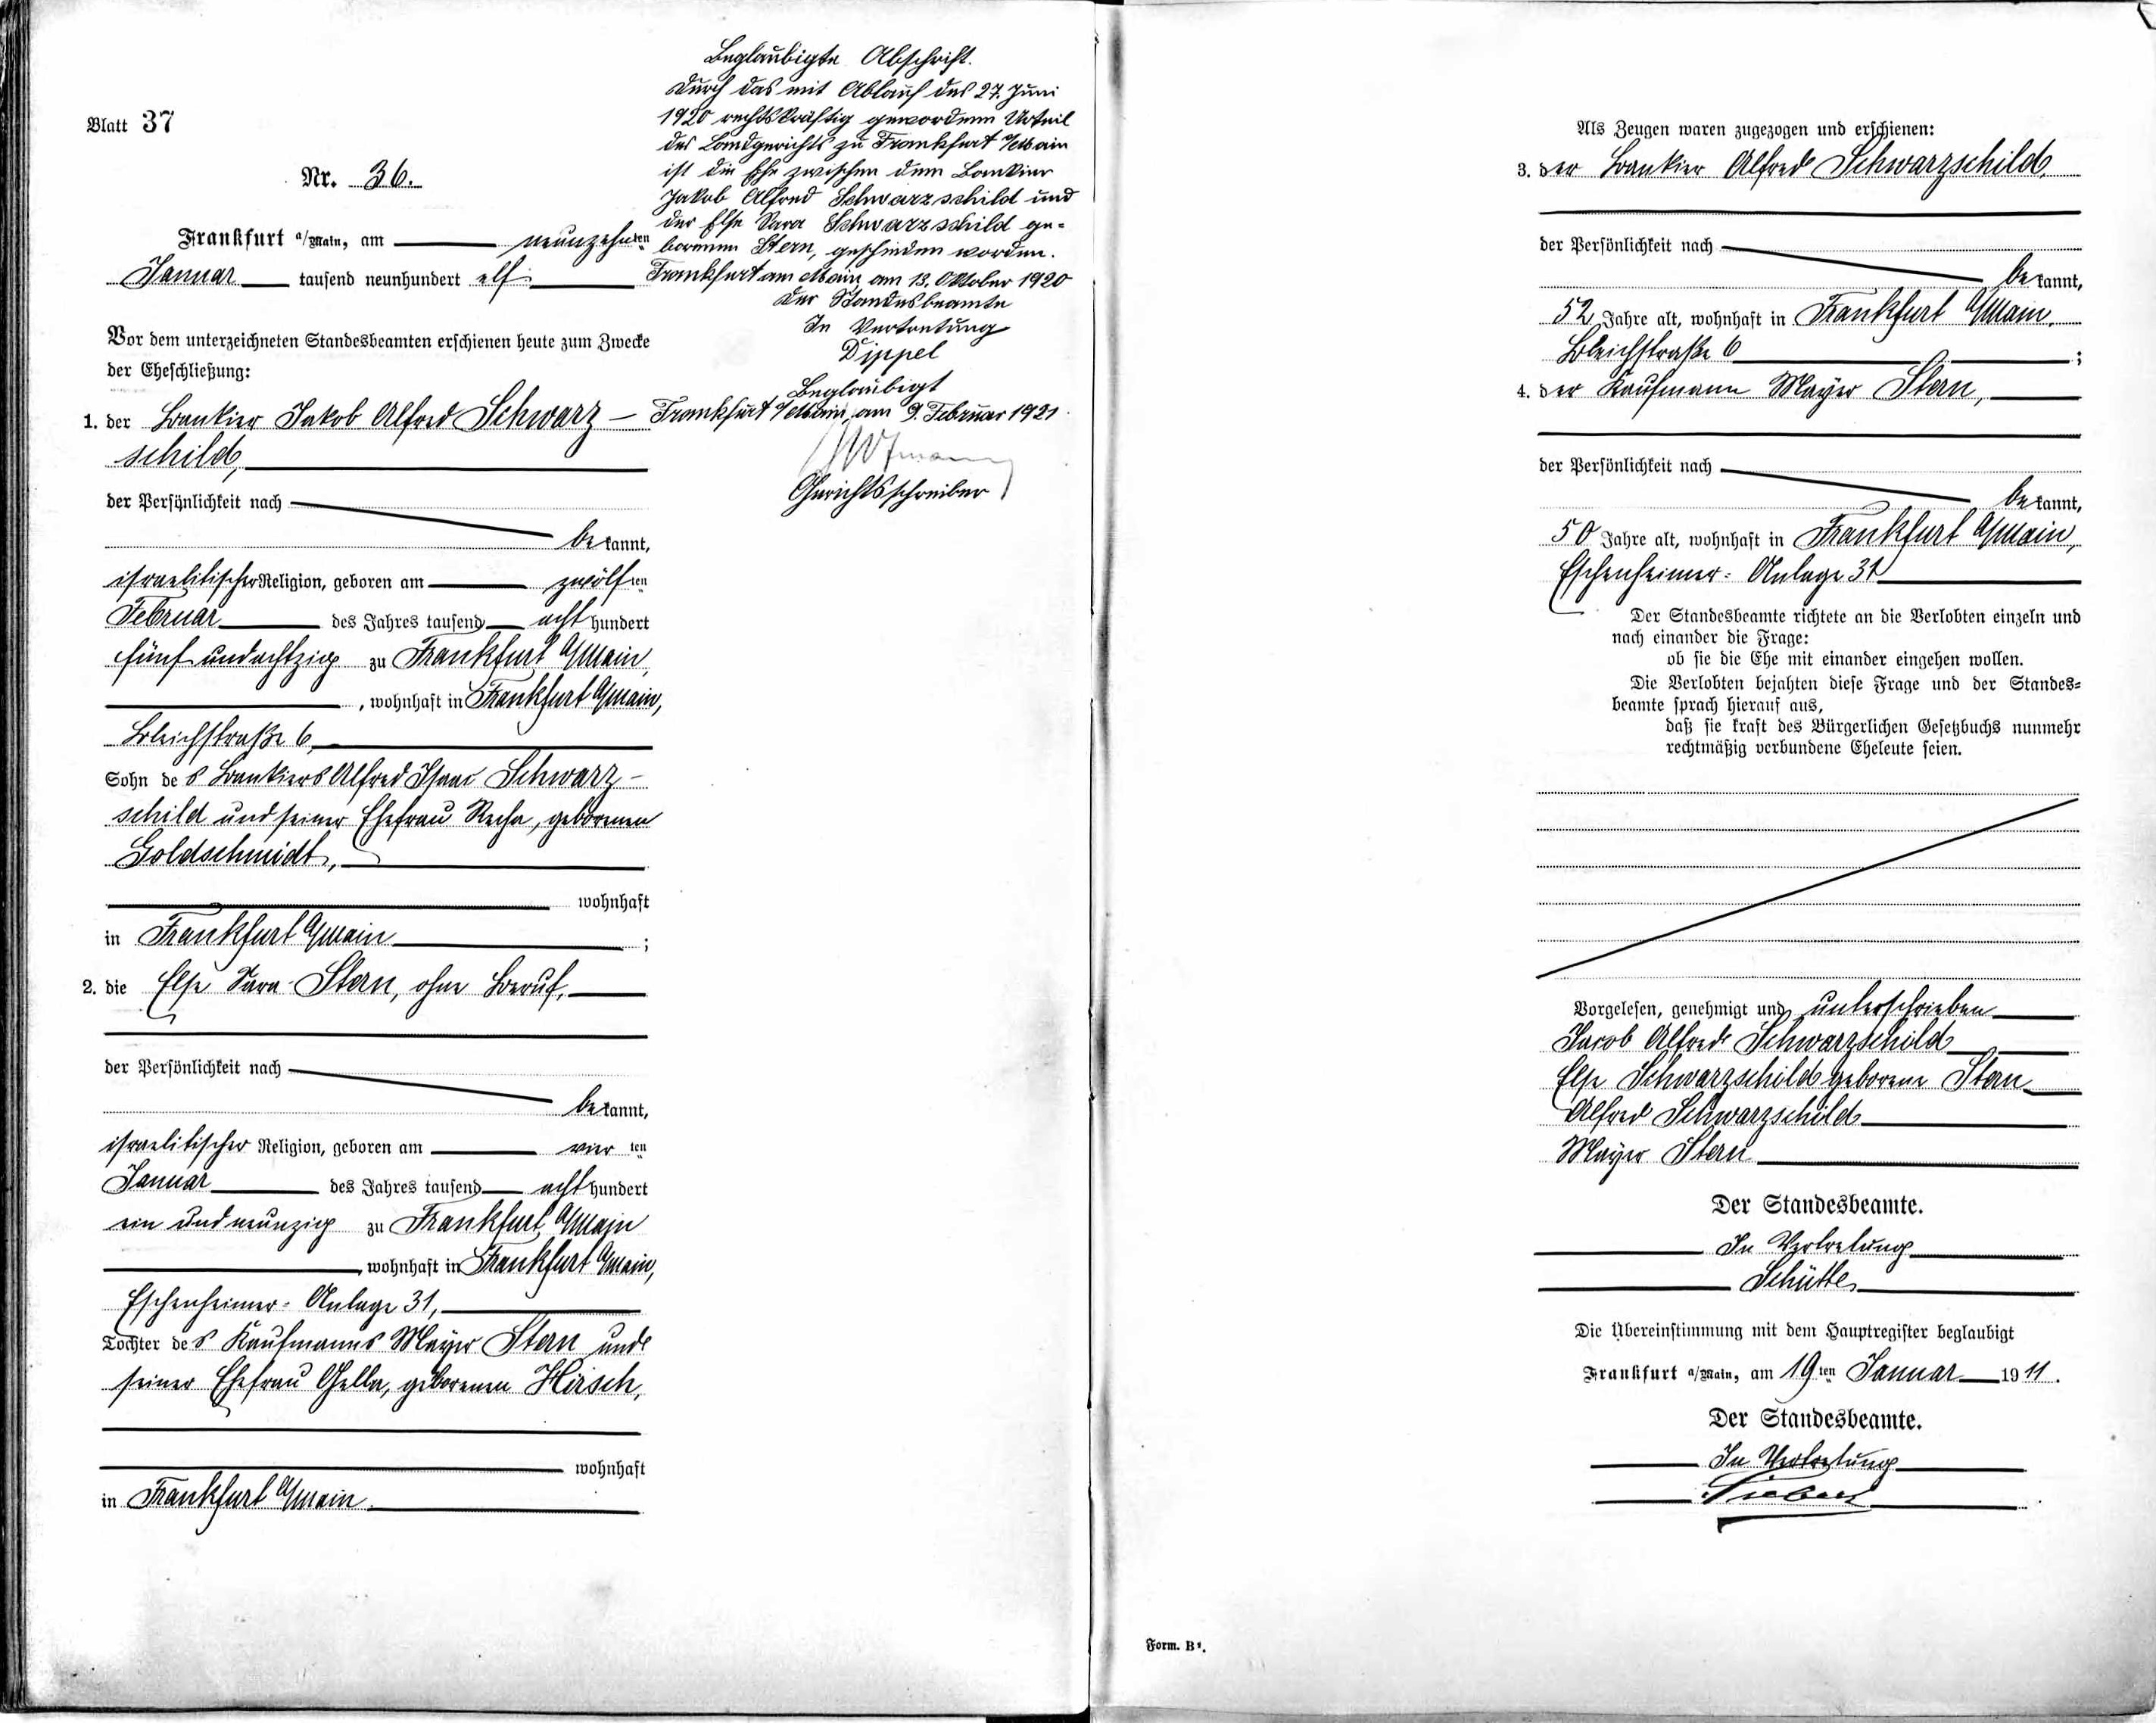 Blatt 37
Nr. 36.
Frankfurt a/Main, am neunzehnten
Januar tausend neunhundert elf
Vor dem unterzeichneten Standesbeamten erschienen heute zum Zwecke
der Eheschließung:
1. der Bankier Jakob Alfred Schwarz-
schild,
der Persönlichkeit nach
bekannt,
israelitischer Religion, geboren am zwölften
Februar des Jahres tausend acht hundert
fünfundachtzig zu Frankfurt a/Main,
, wohnhaft in Frankfurt a/Main,
Bleichstraße 6,
Sohn des Bankiers Alfred Isaac Schwarz-
schild und seiner Ehefrau Recha, geborenen
Goldschmidt,
wohnhaft
in Frankfurt a/Main ;
2. die Else Sara Stern, ohne Beruf,
der Persönlichkeit nach
bekannt,
israelitischer Religion, geboren am vierten
Januar des Jahres tausend acht hundert
ein und neunzig zu Frankfurt a/Main
, wohnhaft in Frankfurt a/Main,
Eschenheimer-Anlage 31,
Tochter des Kaufmanns Mayer Stern und
seiner Ehefrau Gella, geborenen Hirsch,
wohnhaft
in Frankfurt a/Main.
Beglaubigte Abschrift.
Durch das mit Ablauf des 27. Juni
1920 rechtskräftig gewordenen Urteil
des Landgerichts zu Frankfurt a/Main
ist die Ehe zwischen dem Bankier
Jakob Alfred Schwarzschild und
der Else Sara Schwarzschild ge-
borenen Stern, geschieden worden.
Frankfurt am Main, am 13. Oktober 1920
Der Standesbeamte
In Vertretung
Dippel
Beglaubigt
Frankfurt a/Main, am 9. Februar 1921.
Gerichtsschreiber
Als Zeugen waren zugezogen und erschienen:
3. der Bankier Alfred Schwarzschild,
der Persönlichkeit nach
bekannt,
52 Jahre alt, wohnhaft in Frankfurt a/Main,
Bleichstraße 6 ;
4. der Kaufmann Mayer Stern,
der Persönlichkeit nach
bekannt,
50 Jahre alt, wohnhaft in Frankfurt a/Main,
Eschenheimer-Anlage 31
Der Standesbeamte richtete an die Verlobten einzeln und
nach einander die Frage:
ob sie die Ehe mit einander eingehen wollen.
Die Verlobten bejahten diese Frage und der Standes-
beamte sprach hierauf aus,
daß sie kraft des Bürgerlichen Gesetzbuchs nunmehr
rechtmäßig verbundene Eheleute seien.
Vorgelesen, genehmigt und unterschrieben
Jacob Alfred Schwarzschild
Else Schwarzschild geborene Stern
Alfred Schwarzschild
Mayer Stern
Der Standesbeamte.
In Vertretung
Schütte
Die Übereinstimmung mit dem Hauptregister beglaubigt
Frankfurt a/Main, am 19ten Januar 1911.
Der Standesbeamte.
In Vertretung
Form. B1.